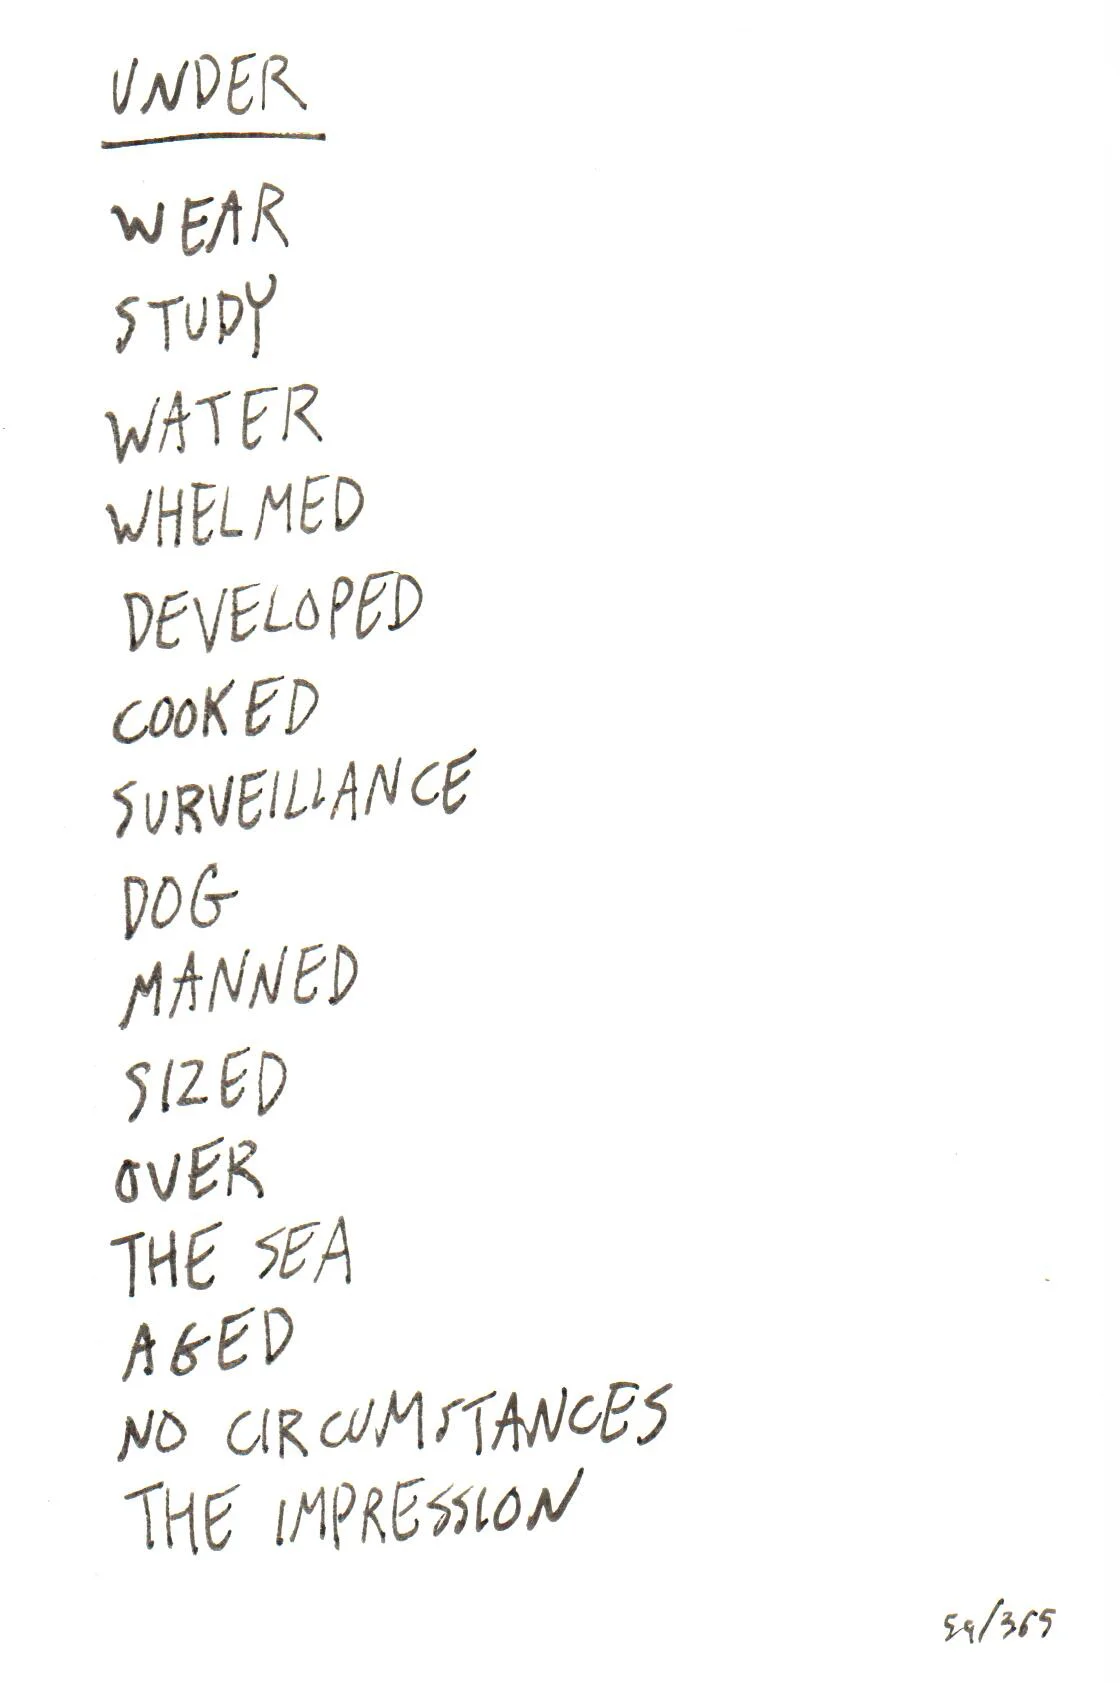 UNDER
WEAR
STUDY
WATER
WHELMED
DEVELOPED
COOKED
SURVEILLANCE
DOG
MANNED
SIZED
OVER
THE SEA
AGED
NO CIRCUMSTANCES
THE IMPRESSION
59/365